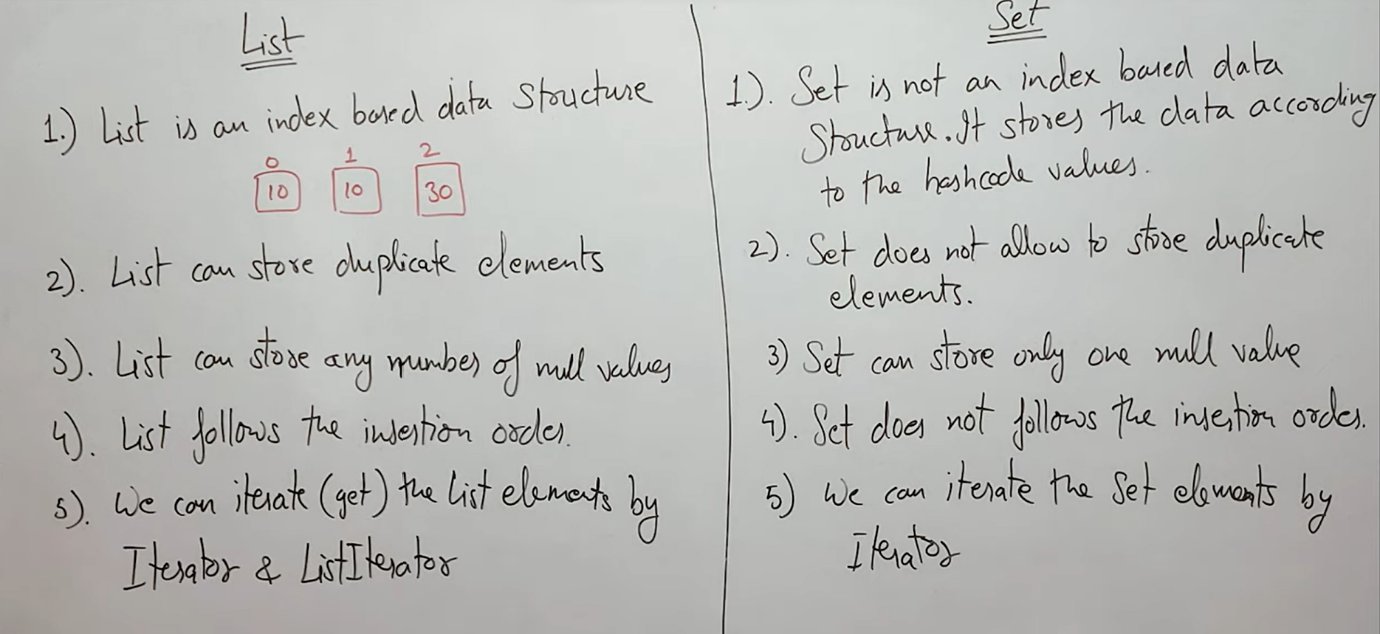 List
1.) List is an index based data structure
0 1 2
10 10 30
2). List can store duplicate elements
3). List can store any number of null values
4). List follows the insertion order.
5). We can iterate (get) the list elements by
Iterator & ListIterator
Set
1.). Set is not an index based data
Structure. It stores the data according
to the hashcode values.
2). Set does not allow to store duplicate
elements.
3) Set can store only one null value
4). Set does not follows the insertion order.
5) We can iterate the Set elements by
Iterator